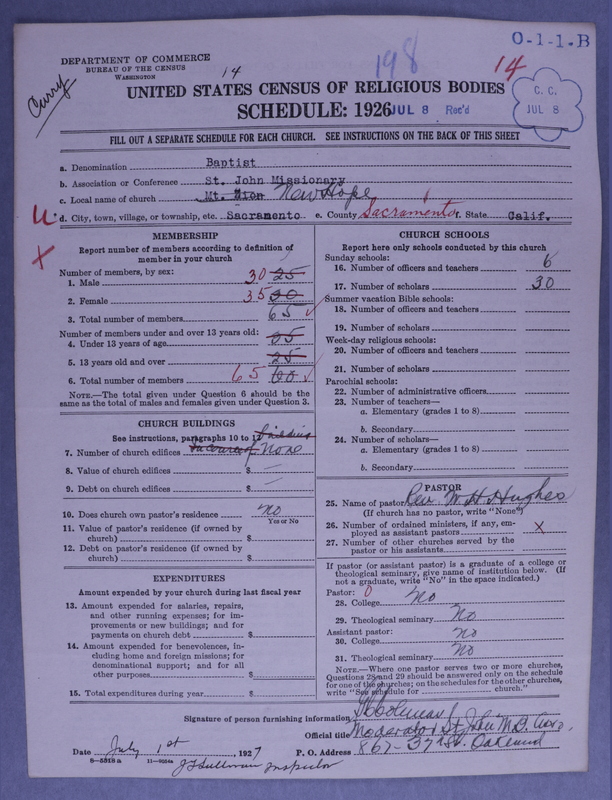 O-1-1-B
DEPARTMENT OF COMMERCE
BUREAU OF THE CENSUS
WASHINGTON
Curry
14
198
14
UNITED STATES CENSUS OF RELIGIOUS BODIES
SCHEDULE: 1926
JUL 8 Rec'd
C. C.
JUL 8
FILL OUT A SEPARATE SCHEDULE FOR EACH CHURCH. SEE INSTRUCTIONS ON THE BACK OF THIS SHEET
a. Denomination Baptist
b. Association or Conference St. John Missionary
c. Local name of church Mt. Zion New Hope
U. d. City, town, village, or township, etc. Sacramento e. County Sacramento f. State Calif.
X
MEMBERSHIP
Report number of members according to definition of member in your church
Number of members, by sex:
1. Male 30 25
2. Female 35 30
3. Total number of members 65
Number of members under and over 13 years old:
4. Under 13 years of age 05
5. 13 years old and over 25
6. Total number of members 65 60
NOTE.—The total given under Question 6 should be the same as the total of males and females given under Question 3.
CHURCH BUILDINGS
See instructions, paragraphs 10 to 12 building
7. Number of church edifices None
8. Value of church edifices $ —
9. Debt on church edifices $ —
10. Does church own pastor's residence? No
Yes or No
11. Value of pastor's residence (if owned by church) $
12. Debt on pastor's residence (if owned by church) $
EXPENDITURES
Amount expended by your church during last fiscal year
13. Amount expended for salaries, repairs, and other running expenses; for improvements or new buildings; and for payments on church debt $
14. Amount expended for benevolences, including home and foreign missions; for denominational support; and for all other purposes $
15. Total expenditures during year $
CHURCH SCHOOLS
Report here only schools conducted by this church
Sunday schools:
16. Number of officers and teachers 6
17. Number of scholars 30
Summer vacation Bible schools:
18. Number of officers and teachers
19. Number of scholars
Week-day religious schools:
20. Number of officers and teachers
21. Number of scholars
Parochial schools:
22. Number of administrative officers
23. Number of teachers—
a. Elementary (grades 1 to 8)
b. Secondary
24. Number of scholars—
a. Elementary (grades 1 to 8)
b. Secondary
PASTOR
25. Name of pastor Rev. W. H. Hughes
(If church has no pastor, write "None")
26. Number of ordained ministers, if any, employed as assistant pastors X
27. Number of other churches served by the pastor or his assistants
If pastor (or assistant pastor) is a graduate of a college or theological seminary, give name of institution below. (If not a graduate, write "No" in the space indicated.)
Pastor: 0
28. College No
29. Theological seminary No
Assistant pastor:
30. College No
31. Theological seminary No
NOTE.—Where one pastor serves two or more churches, Questions 28 and 29 should be answered only on the schedule for one of the churches; on the schedules for the other churches, write "See schedule for church."
Signature of person furnishing information
Official title Moderator St. John M.B. Asso.
Date July 1st, 1927 P. O. Address 867-37th St. Oakland
8—5318 a
Inspector